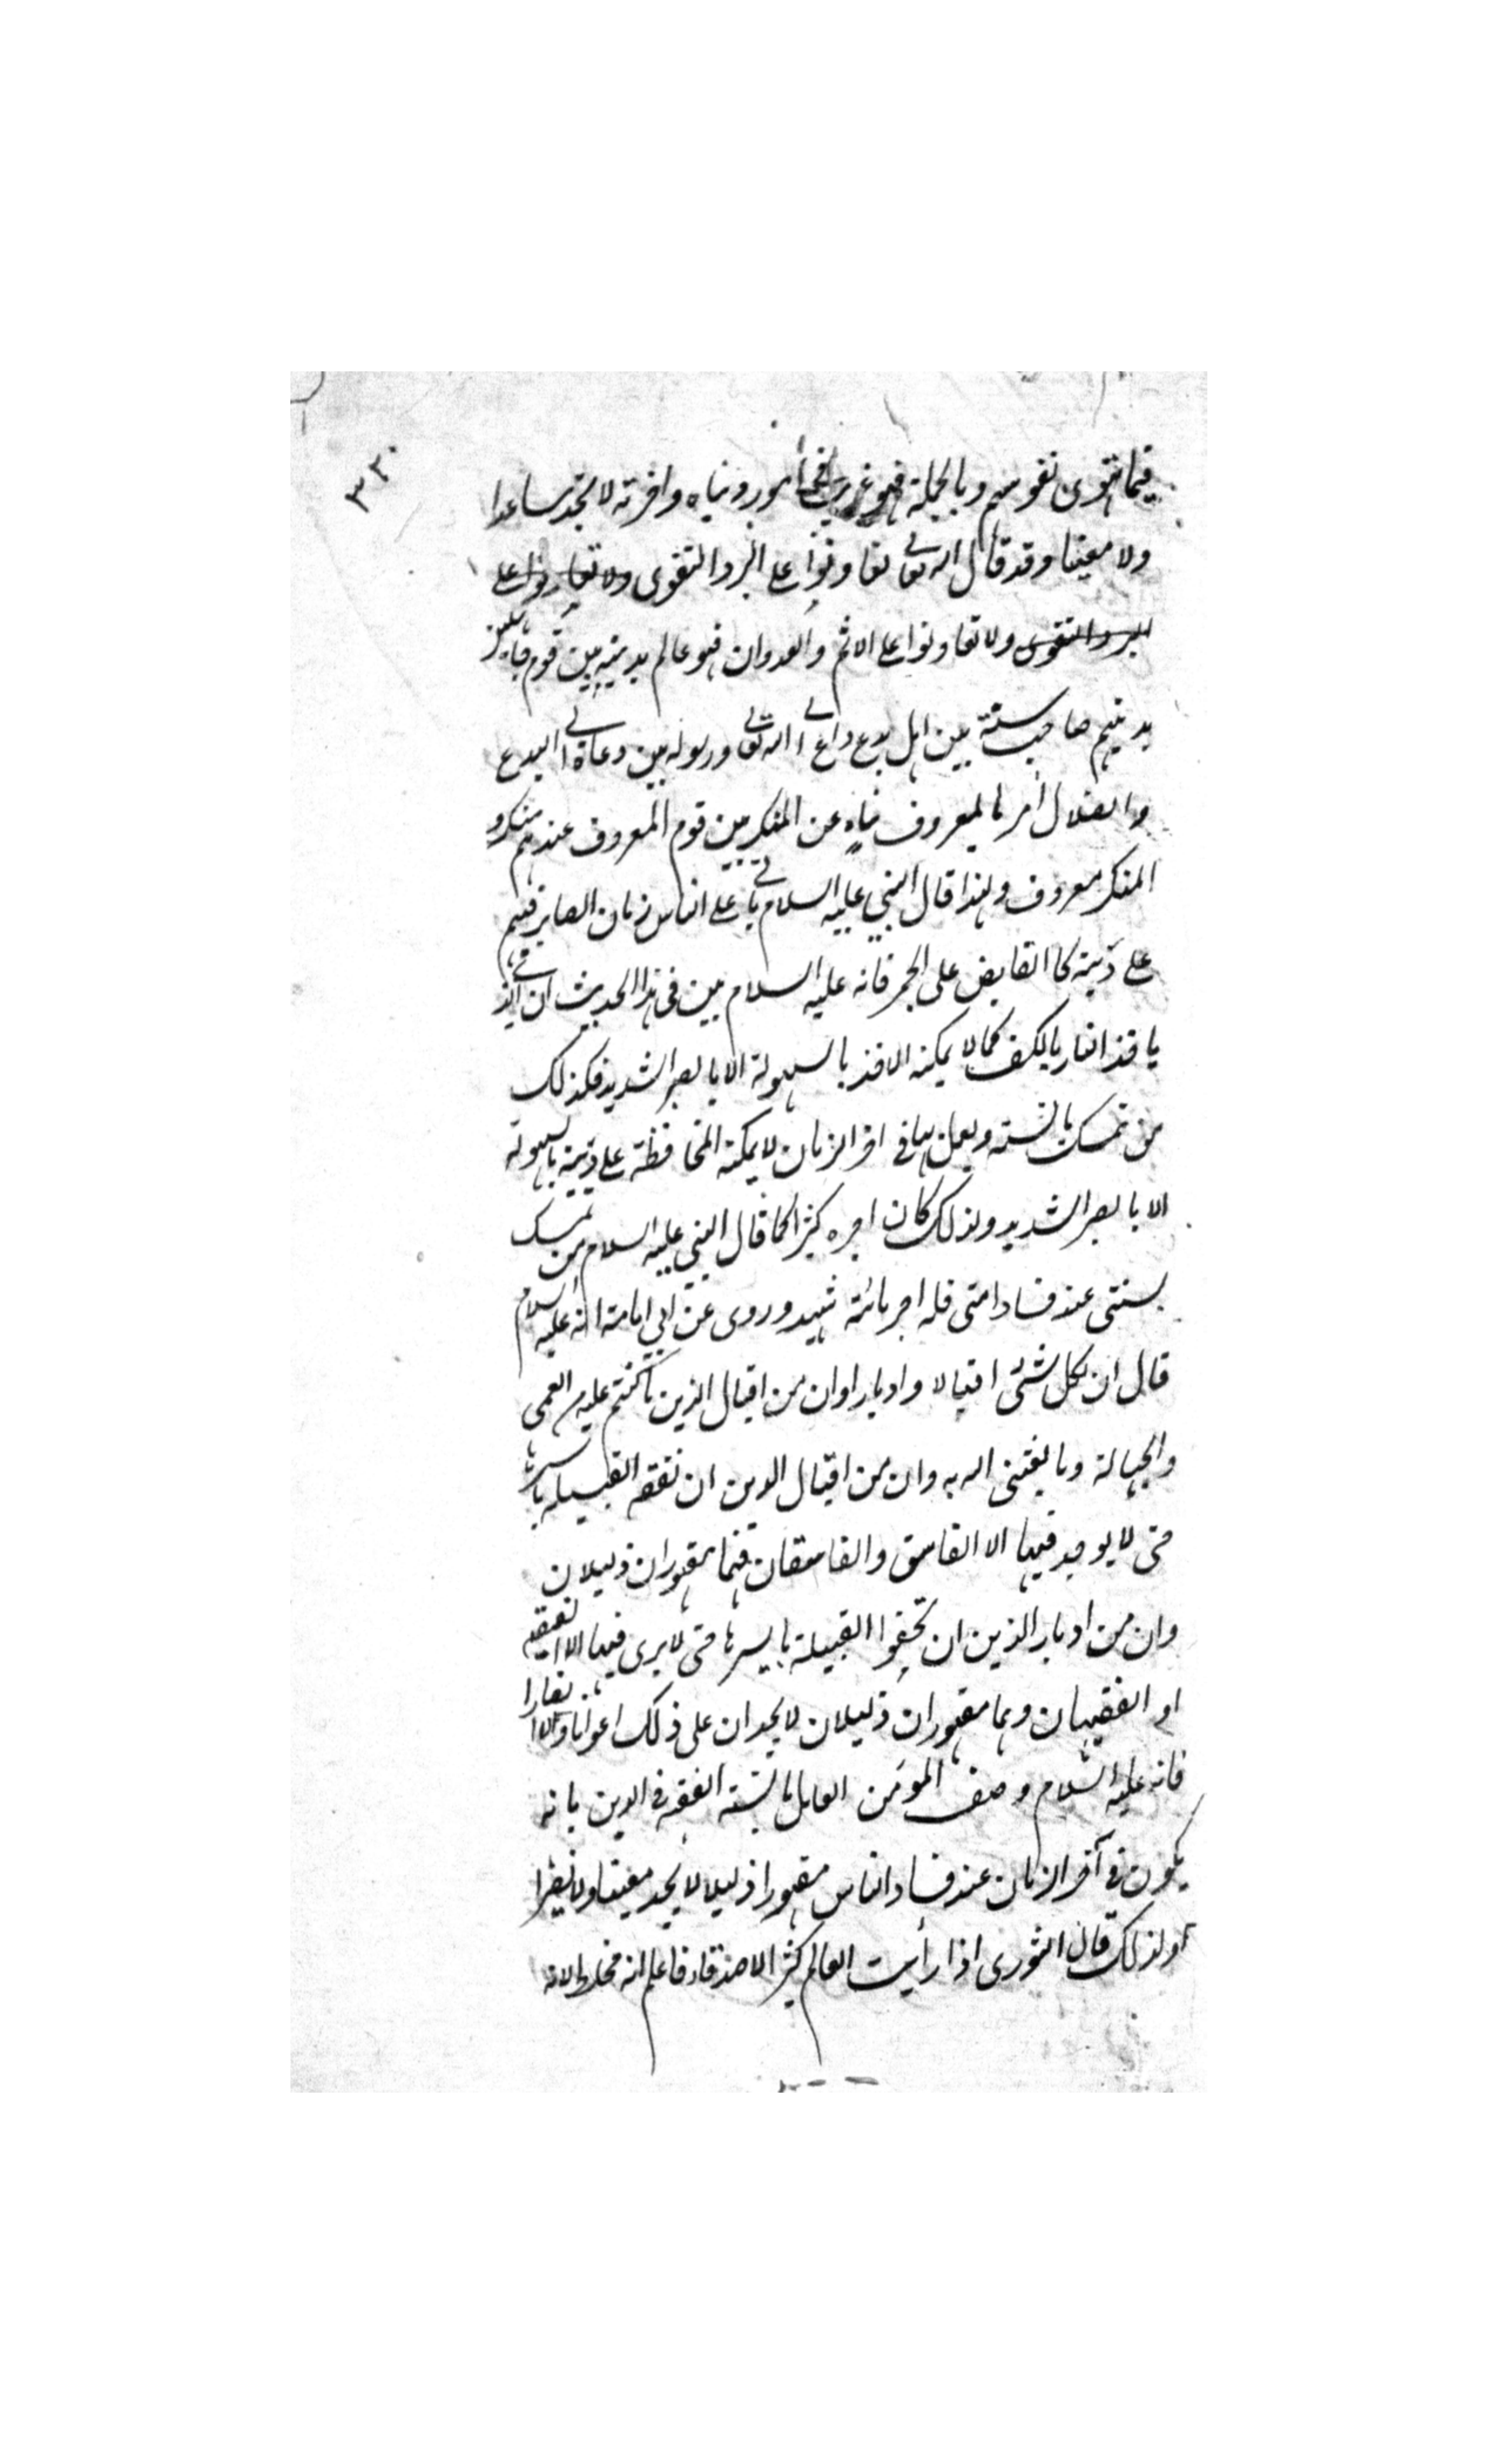 ٣٣٠
فيما تهوى نفوسهم وبالجملة فهو غريب في أمور دنياه واخرته لا تجد مساعدا
ولا معينا وقد قال الله تعالى تعاونوا على البر والتقوى ولا تعاونوا على
البر والتقوى ولا تعاونوا على الاثم والعدوان فهو عالم بدينه بين قوم جاهلين
بدينهم صاحب سنة بين اهل بدع داع الى الله تعالى ورسوله بين دعاة الى البدع
والضلال أمر بالمعروف ناهٍ عن المنكر بين قوم المعروف عندهم منكر و
المنكر معروف ولهذا قال النبي عليه السلام يأتي على الناس زمان الصابر فيهم
على دينه كالقابض على الجمر فانه عليه السلام بين في هذا الحديث ان الذي
يأخذ النار بالكف كما لا يمكنه الاخذ بالسهولة الا بالصبر الشديد فكذلك
من تمسك بالسنة ويعمل بها في اخر الزمان لا يمكنه المحافظة على دينه بالسهولة
الا بالصبر الشديد ولذلك كان اجره كثيرا كما قال النبي عليه السلام من تمسك
بسنتي عند فساد امتي فله اجر مائة شهيد وروى عن ابي امامة انه عليه السلام
قال ان لكل شئ اقبالا وادبارا وان من اقبال الدين ما كنتم عليه من العمى
والجهالة وما بعثني الله به وان من اقبال الدين ان تفقه القبيلة باسرها
حتى لا يوجد فيها الا الفاسق والفاسقان فهما مقهوران ذليلان
وان من ادبار الدين ان تجفوا القبيلة باسرها حتى لا يرى فيها الا الفقيه
او الفقيهان وهما مقهوران ذليلان لا يجدان على ذلك اعوانا ولا انصارا
فانه عليه السلام وصف المؤمن العامل بالسنة الفقه في الدين بانه
يكون في آخر الزمان عند فساد الناس مقهورا ذليلا لا يجد معينا ولا نصيرا
ولذلك قال الثورى اذا رأيت العالم كثير الاصدقاء فاعلم انه مخلط لانه